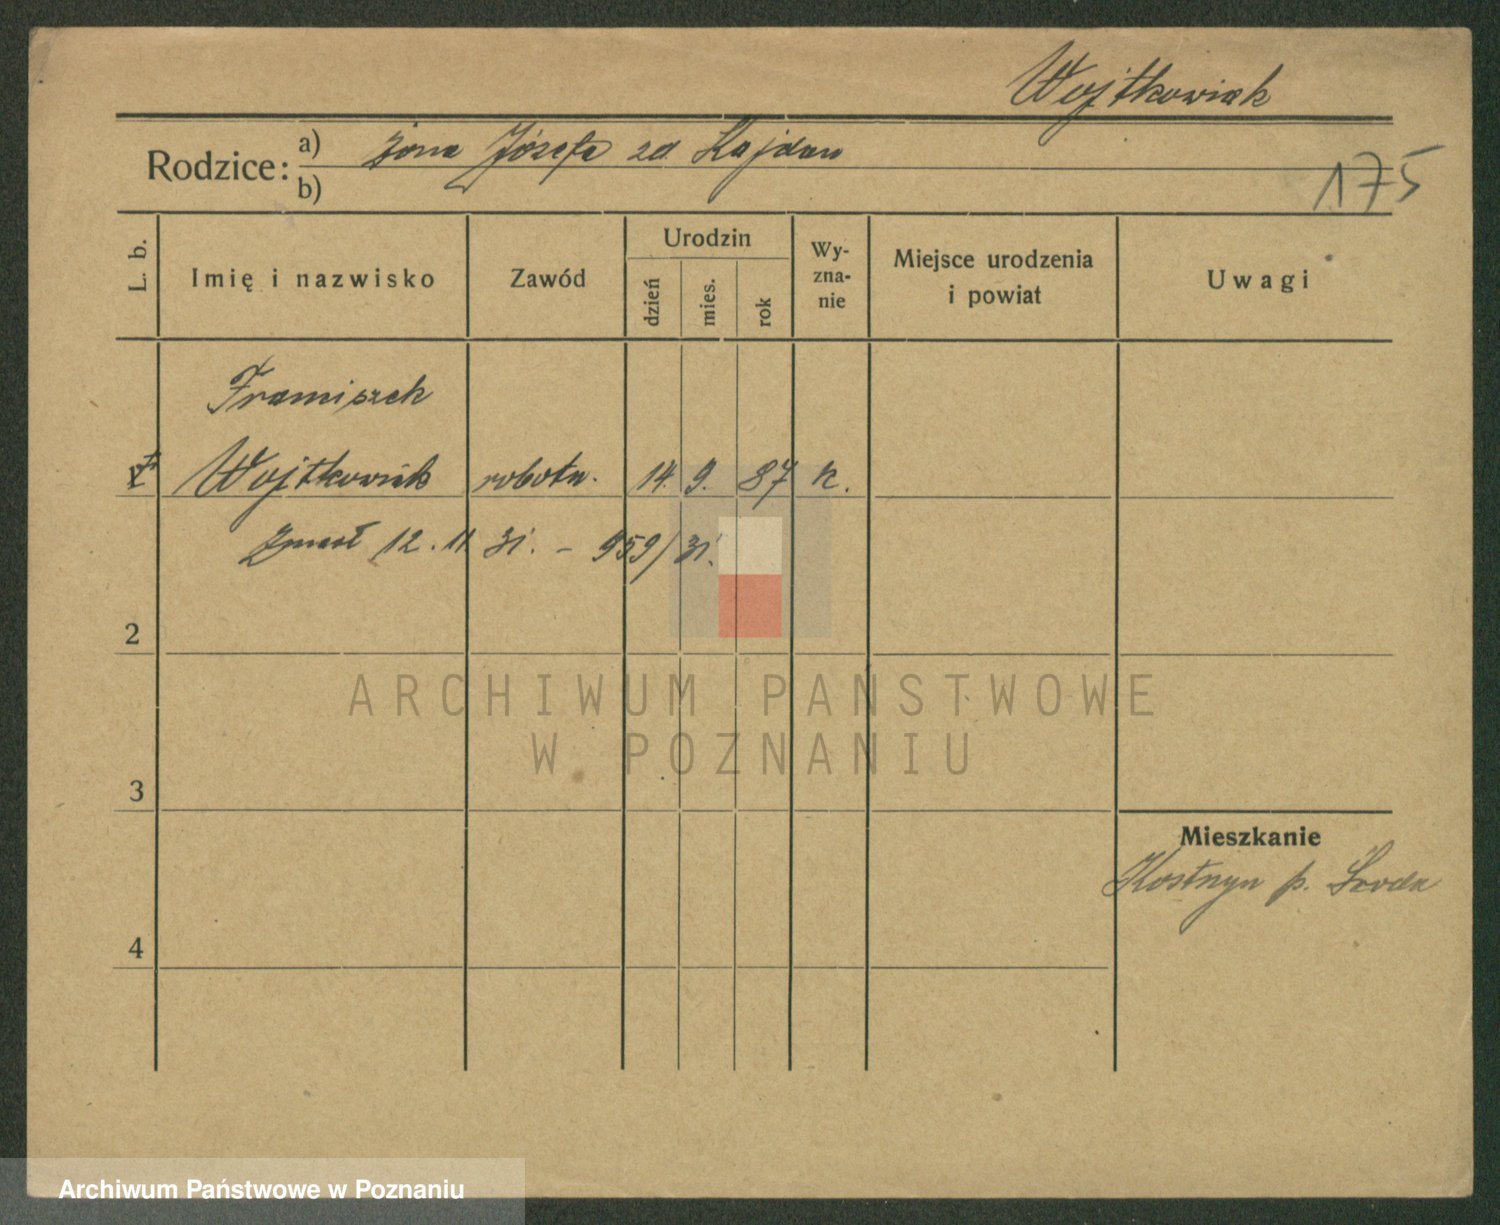 Wojtkowiak
Rodzice: a) żona Józefa zd. Kajdan
b)
175
L. b.
Imię i nazwisko
Zawód
Urodzin
dzień
mies.
rok
Wy-
zna-
nie
Miejsce urodzenia
i powiat
Uwagi
Franciszek
Wojtkowiak robotn. 14. 9. 87 k.
Zmarł 12. 11 31. – 959/31.
2
3
4
Mieszkanie
Kostrzyn p. Środa
ARCHIWUM PAŃSTWOWE
W POZNANIU
Archiwum Państwowe w Poznaniu